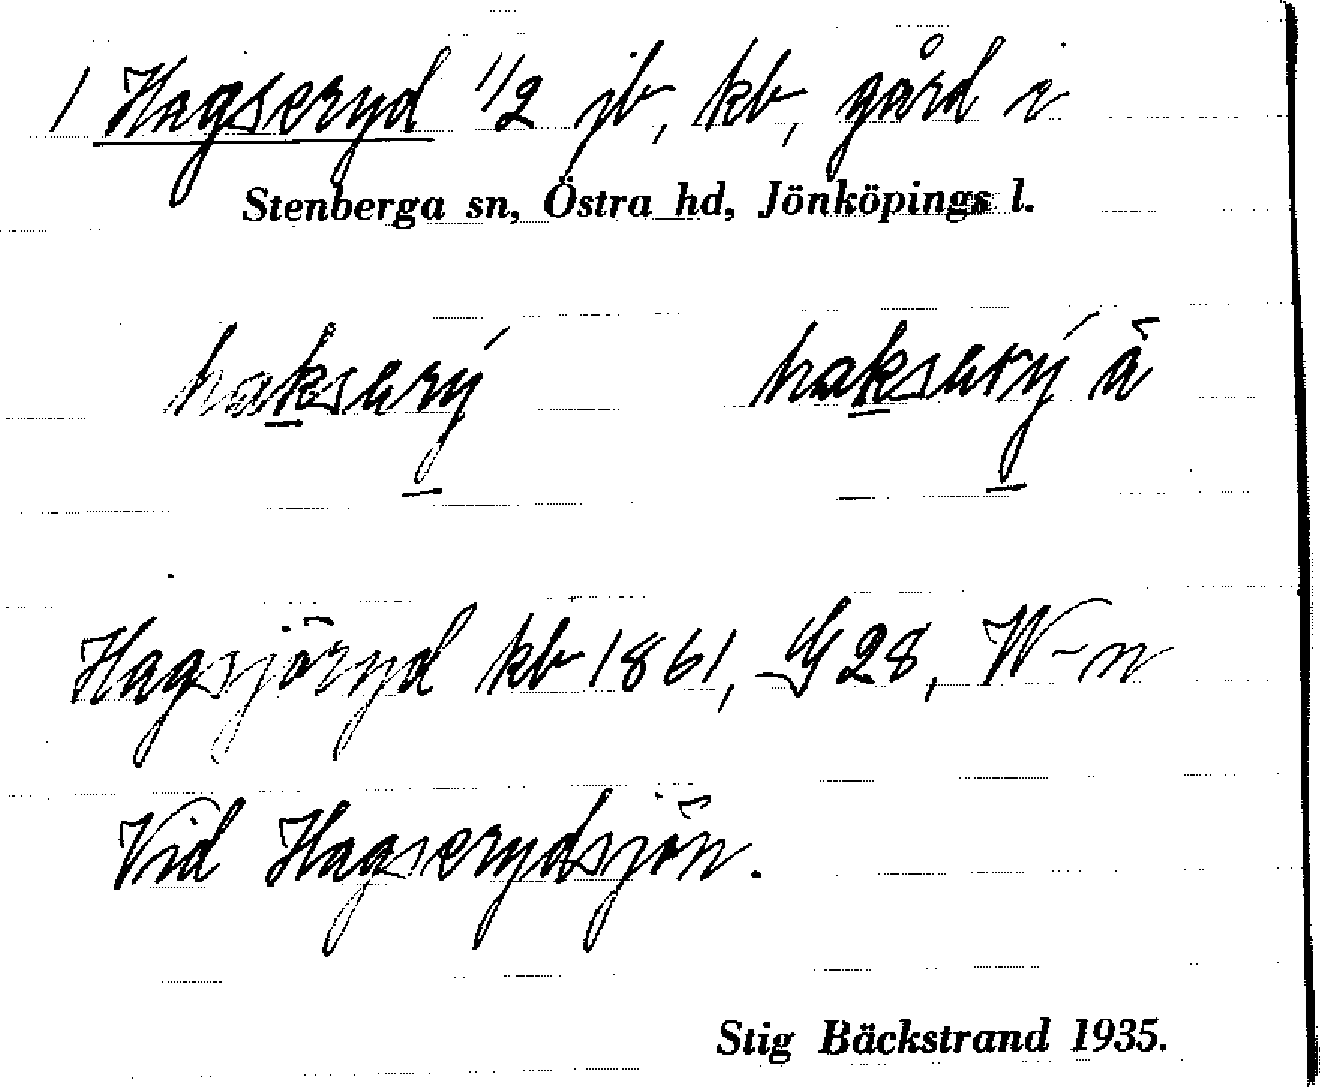 1 Hagseryd 1/2 jb, kb, gård i
Stenberga sn, Östra hd, Jönköpings l.
hakserý hakserý å
Hagsjöryd kb 1861, G 28, W-n
Vid Hagserydsjön.
Stig Bäckstrand 1935.